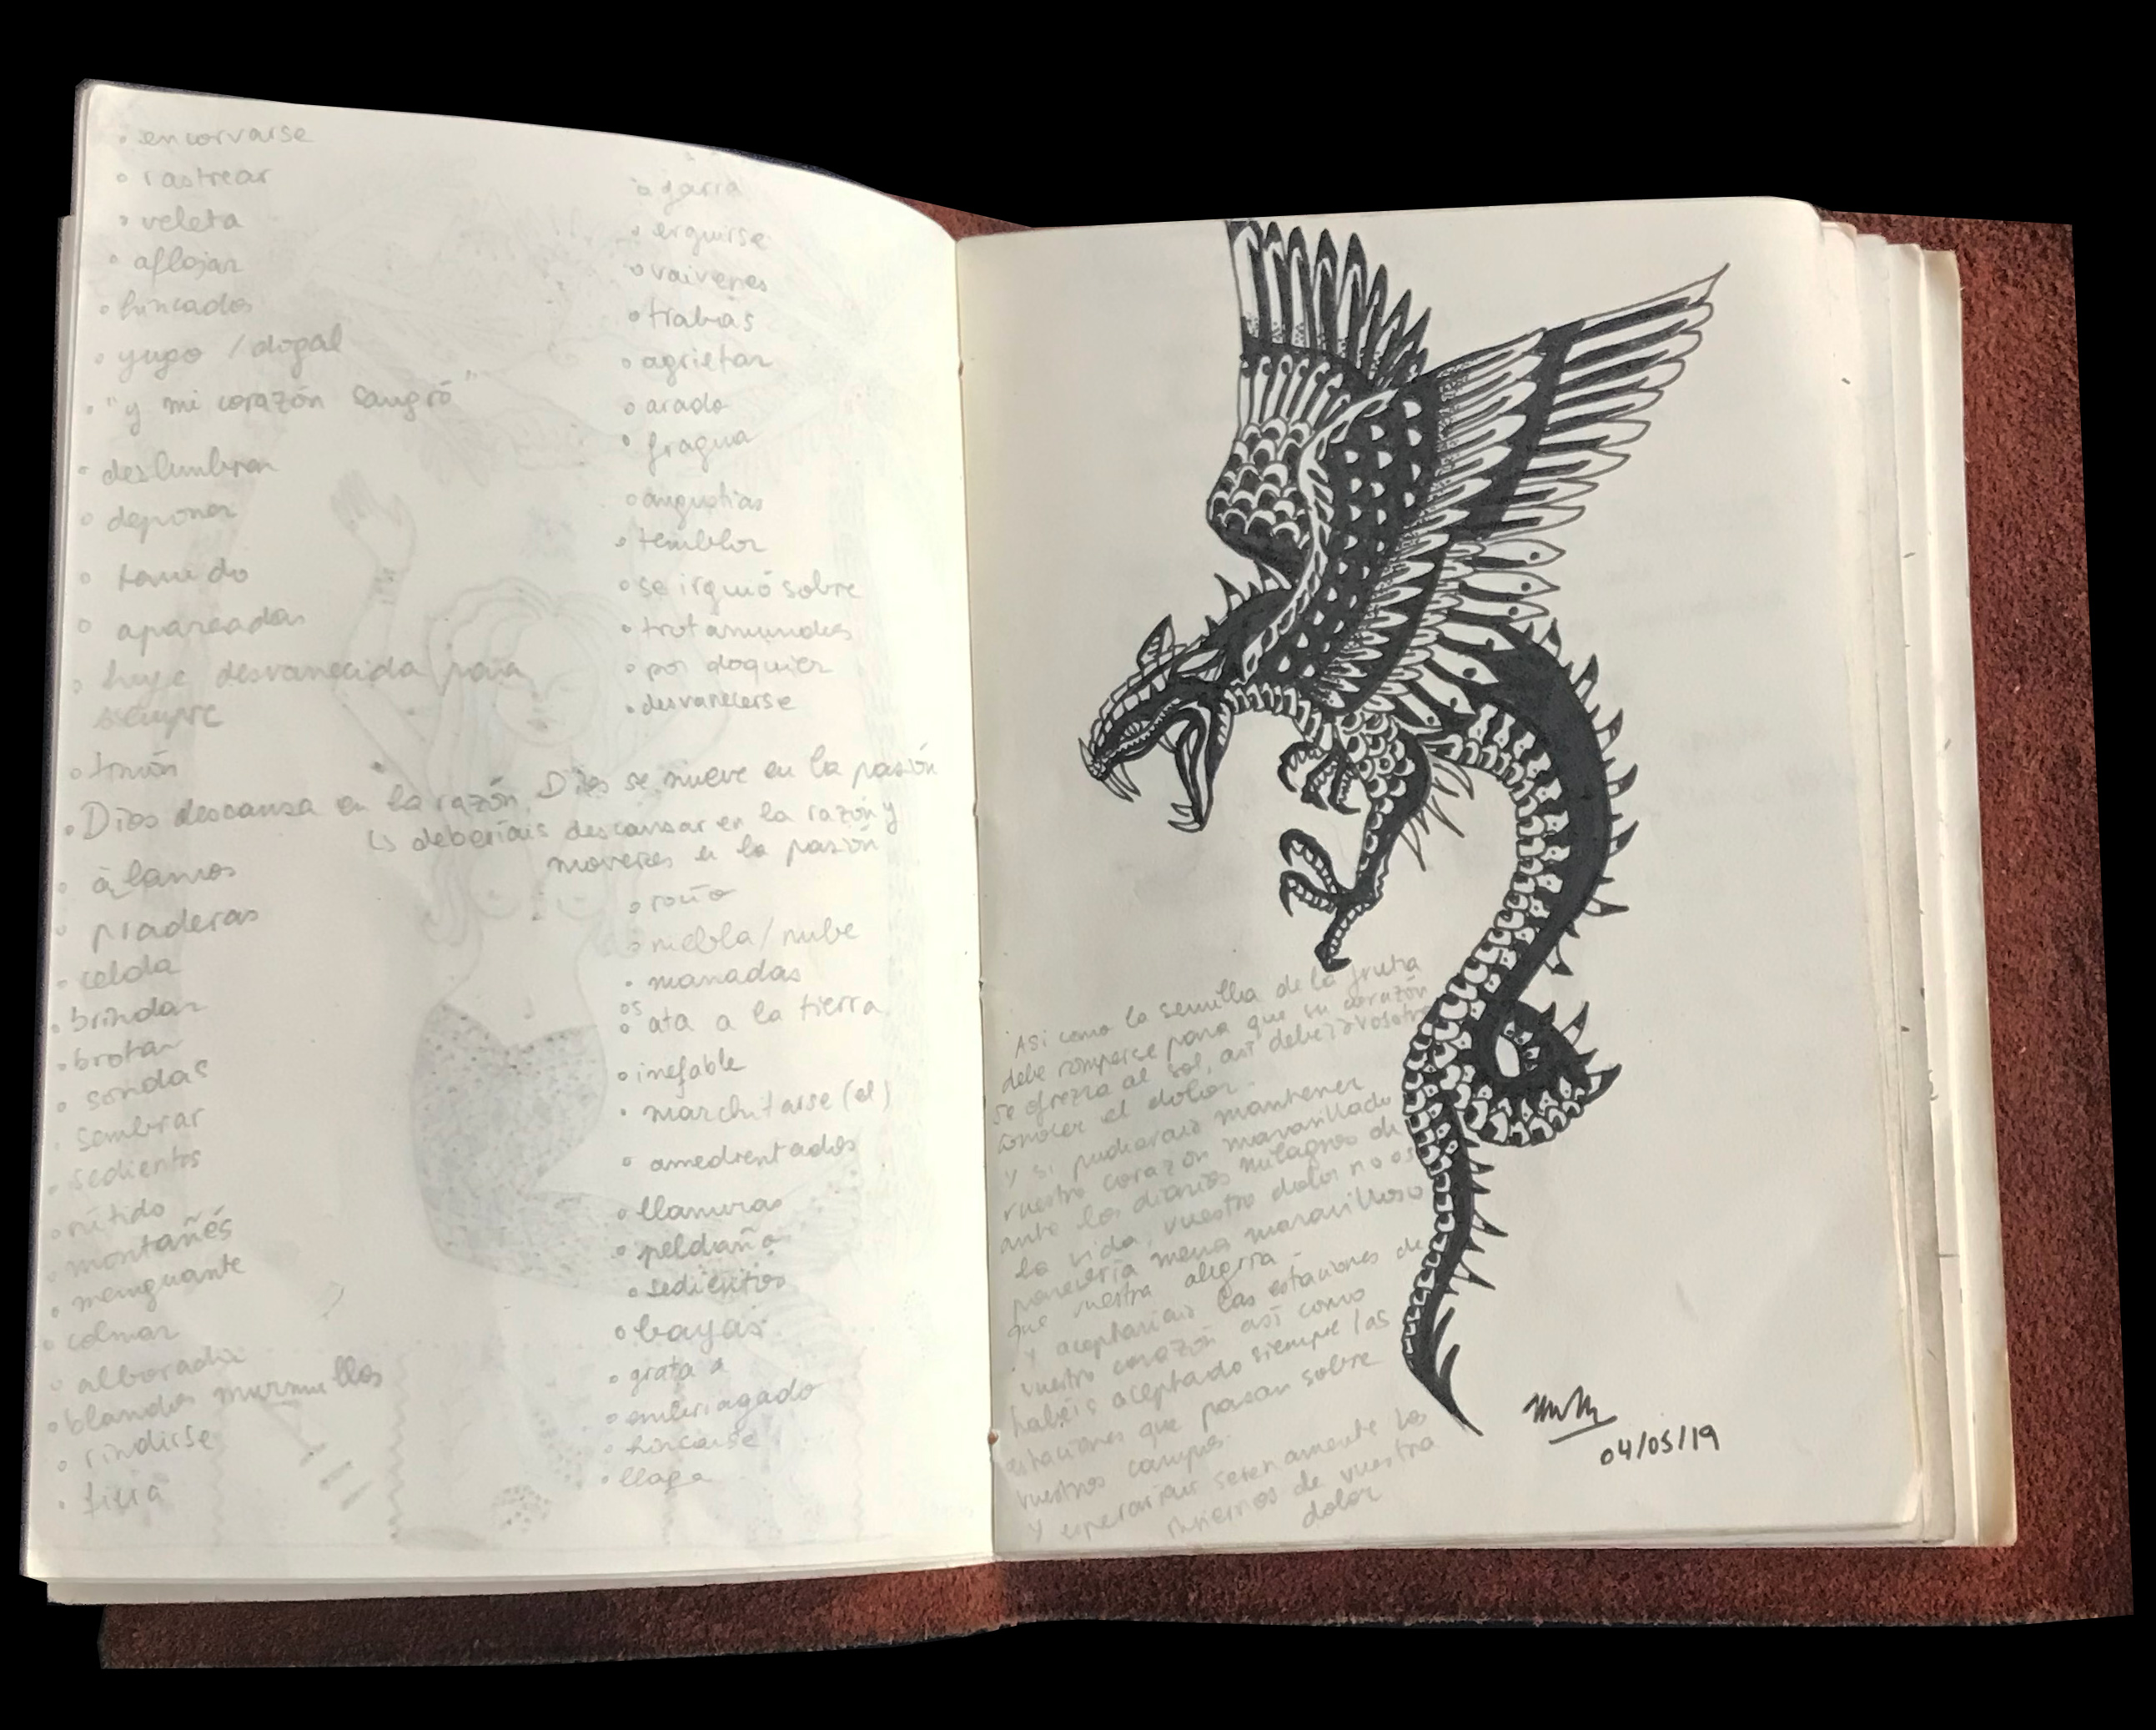 • encorvarse
• rastrear
• veleta
• aflojar
• hincados
• yugo / dogal
• "y mi corazón sangró"
• deslumbran
• deponer
• tamido
• apareadas
• huye desvanecida para
siempre
• timón
• Dios descansa en la razón, Dios se mueve en la pasión
↳ deberíais descansar en la razón y
moveros en la pasión
• álamos
• praderas
• celda
• brindar
• brotar
• sondas
• sembrar
• sedientos
• nítido
• montañés
• menguante
• colmar
• alborada
• blandos murmullos
• rindirse
garra
• erguirse
• vaivenes
• trabas
• agrietar
• arado
• fragua
• angustias
• temblor
• se irguió sobre
• trotamundos
• por doquier
• desvanecerse
• niebla / nube
• manadas
• os ata a la tierra
• inefable
• marchitarse (el)
• amedrentados
• llanuras
• peldaño
• sedientos
• bayas
• grata a
• embriagado
• hincarse
• llaga
Así como la semilla de la fruta
debe romperse para que su corazón
se ofrezca al sol, así debéis vosotros
conocer el dolor.
Y si pudierais mantener
vuestro corazón maravillado
ante los diarios milagros de
la vida, vuestro dolor no os
parecería menos maravilloso
que vuestra alegría.
Y aceptaríais las estaciones de
vuestro corazón así como
habéis aceptado siempre las
estaciones que pasan sobre
vuestros campos.
Y esperaríais serenamente los
inviernos de vuestro
dolor
04/05/19